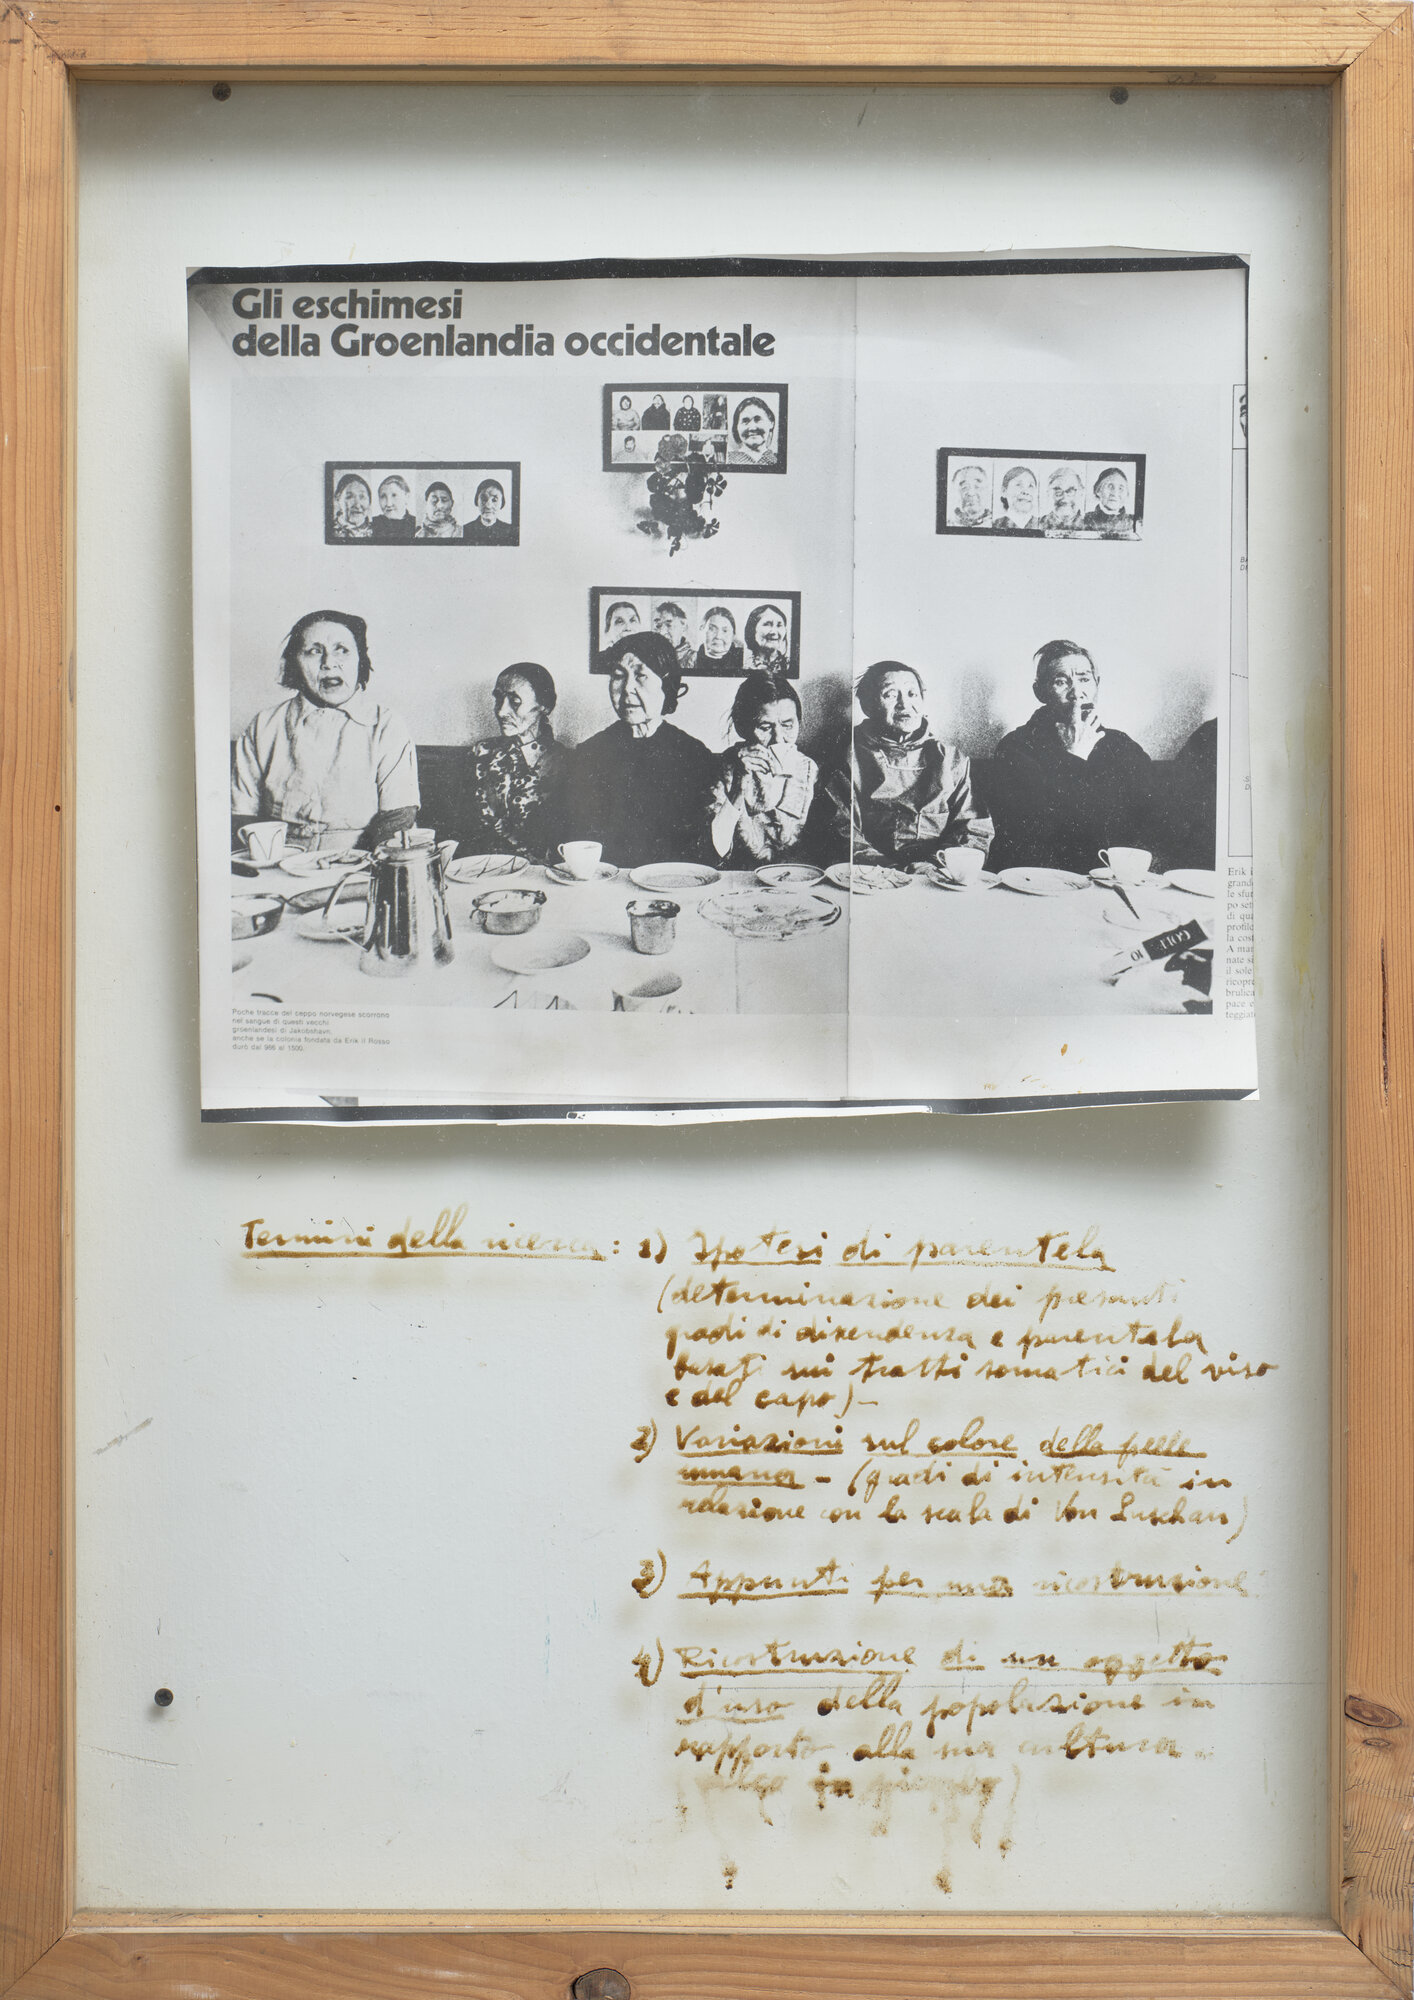 Gli eschimesi
della Groenlandia occidentale
Poche tracce del ceppo norvegese scorrono
nel sangue di questi vecchi
groenlandesi di Jakobshavn,
anche se la colonia fondata da Erik il Rosso
durò dal 986 al 1500.
Erik i
grand
le sfu
po set
di qua
profilo
la cost
A mar
nate si
il sole
ricopre
brulica
pace e
teggiat
Termini della ricerca: 1) Ipotesi di parentela
(determinazione dei presunti
gradi di discendenza e parentela
basati sui tratti somatici del viso
e del capo) -
2) Variazioni sul colore della pelle
umana - (gradi di intensità in
relazione con la scala di Von Luschan)
3) Appunti per una ricostruzione
4) Ricostruzione di un oggetto
d'uso della popolazione in
rapporto alla sua cultura
in piombo)